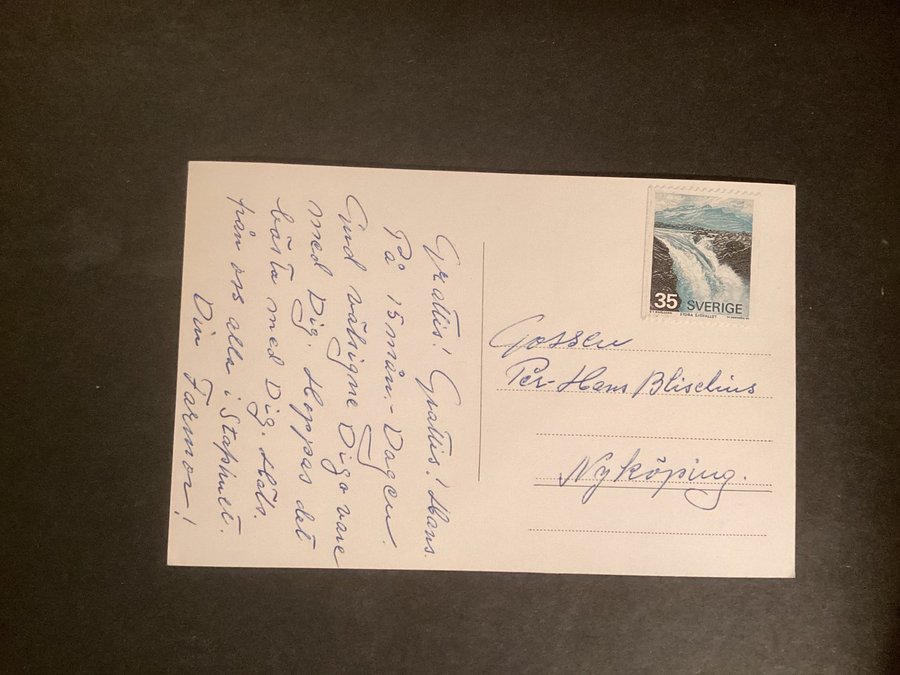 Grattis! Grattis! Hans.
På 15 mån.- Dagen.
Gud välsigne Dig o vare
med Dig. Hoppas det
bästa med Dig. Häls.
från oss alla i Staphuet.
Din Farmor!
35 SVERIGE
STORA SJÖFALLET
Gossen
Per-Hans Blischius
Nyköping.